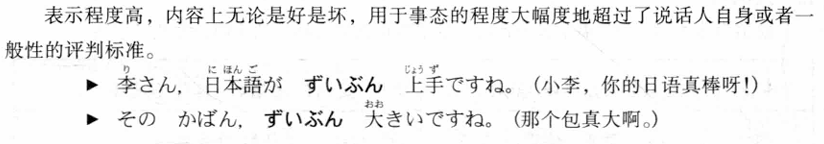 表示程度高，内容上无论是好是坏，用于事态的程度大幅度地超过了说话人自身或者一
般性的评判标准。
▶ 李さん，日本語が ずいぶん 上手ですね。（小李，你的日语真棒呀！）
▶ その かばん，ずいぶん 大きいですね。（那个包真大啊。）